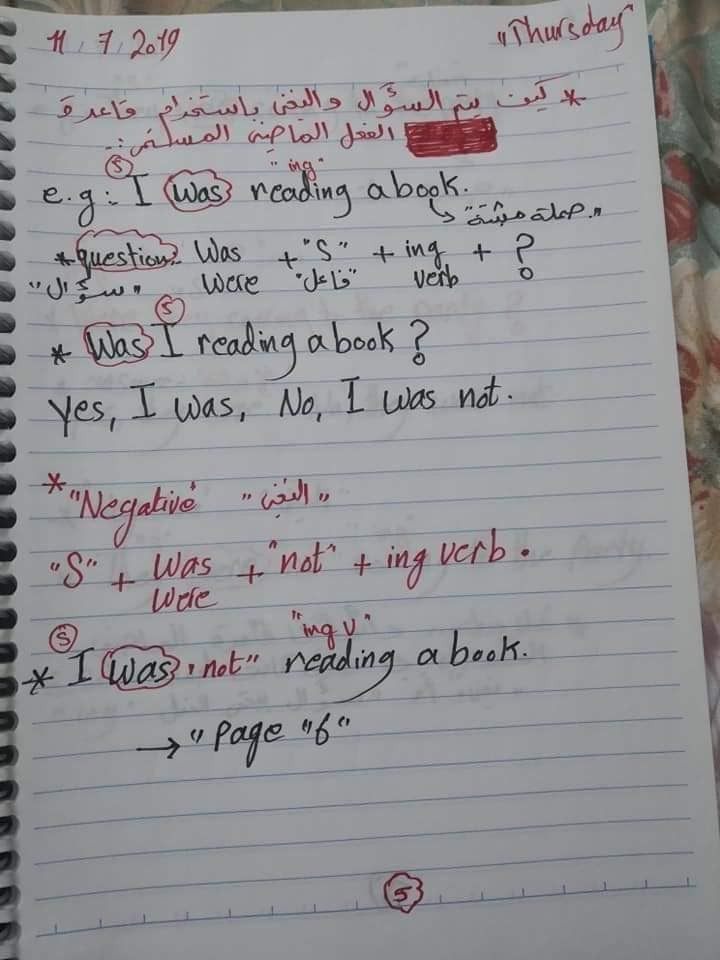 11 / 7 / 2019 "Thursday"
* كيف يتم السؤال والنفي باستخدام قاعدة
الفعل الماضي المستمر :-
(S) "ing"
e.g: I was reading a book.
"جملة مثبتة"
* question:- Was + "S" + ing + ?
"سؤال" Were "فاعل" verb
(S)
* Was I reading a book?
Yes, I was, No, I was not.
* "Negative" "النفي"
"S" + was + "not" + ing verb.
were
(S) "ing v"
* I was "not" reading a book.
→ "Page "6"
5